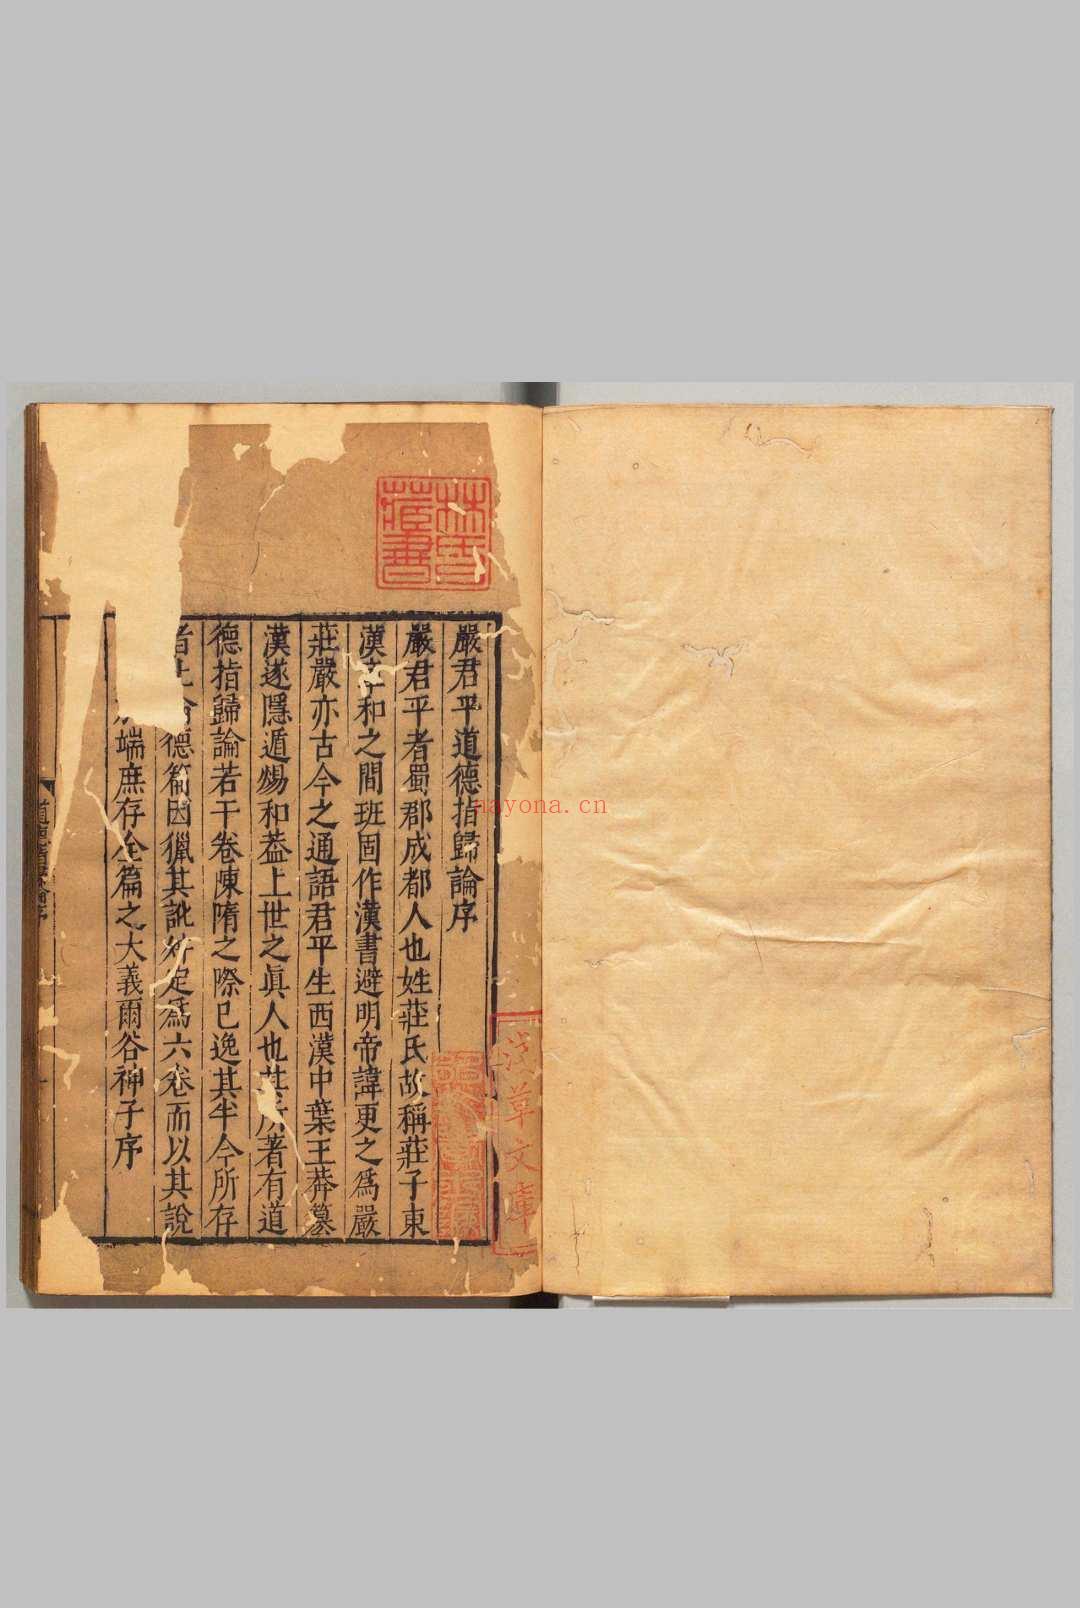 嚴君平道德指歸論序
嚴君平者蜀郡成都人也姓莊氏故稱莊子東
漢章和之間班固作漢書避明帝諱更之爲嚴
莊嚴亦古今之通語君平生西漢中葉王莽篡
漢遂隱遁煬和蓋上世之眞人也其所著有道
德指歸論若干卷陳隋之際已逸其半今所存
者止論德篇因獵其訛舛定爲六卷而以其說
端庶存全篇之大義爾谷神子序
道德指歸論序
林氏藏書
淺草文庫
nayona.cn